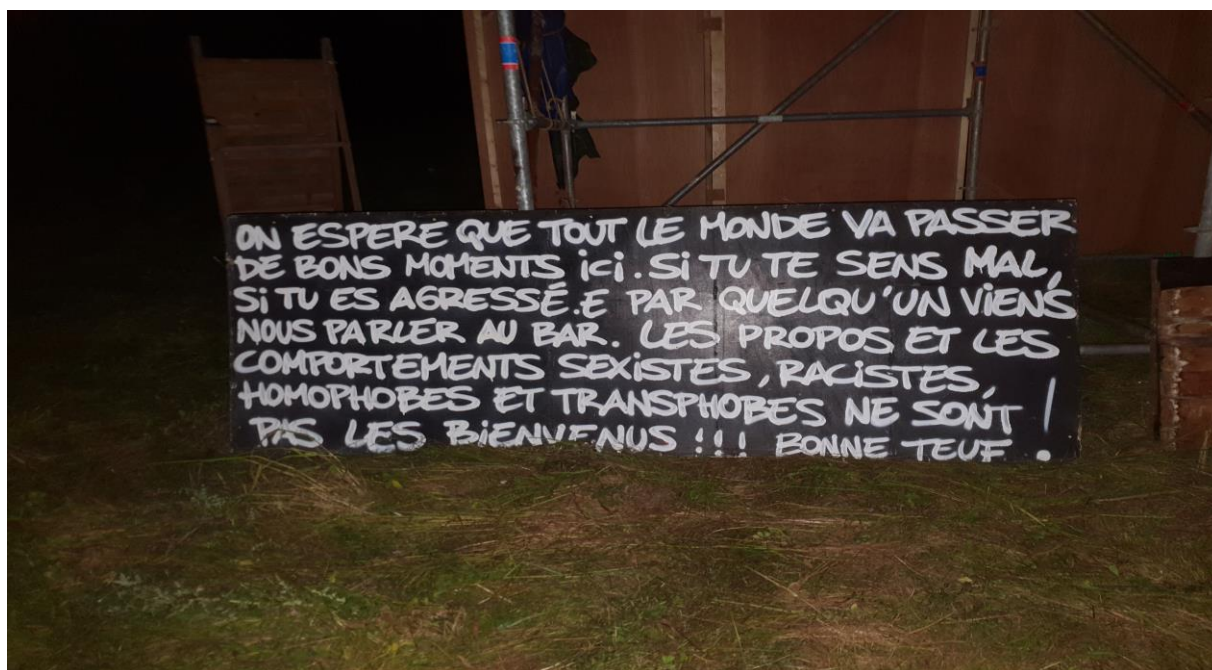 ON ESPERE QUE TOUT LE MONDE VA PASSER
DE BONS MOMENTS ici. Si TU TE SENS MAL,
Si TU ES AGRESSÉ.E PAR QUELQU'UN ViENS
NOUS PARLER AU BAR. LES PROPOS ET LES
COMPORTEMENTS SEXISTES, RACiSTES,
HOMOPHOBES ET TRANSPHOBES NE SONT
PAS LES BiENVENUS !!! BONNE TEUF !